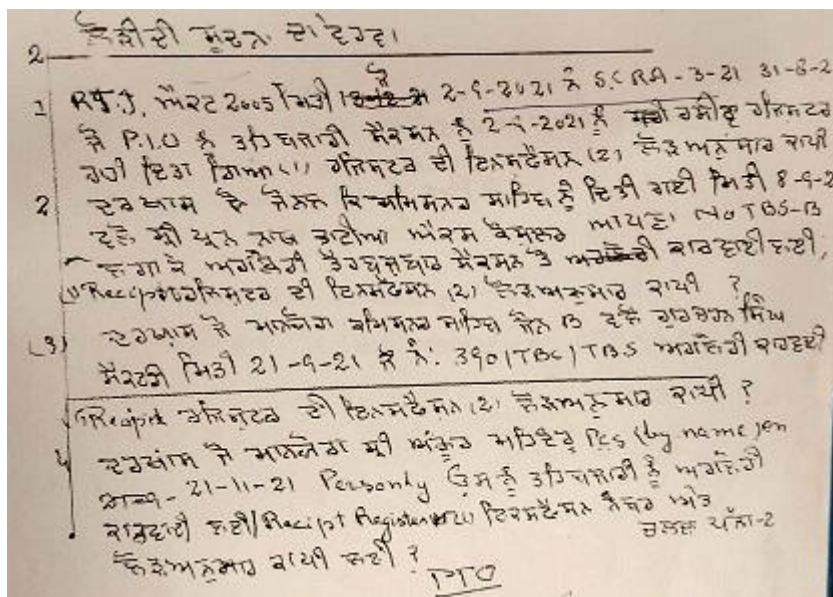 2 ਲੋੜੀਦੀ ਸੂਚਨਾ ਦਾ ਵੇਰਵਾ
1 R.T.I. ਐਕਟ 2005 ਮਿਤੀ 2-9-2021 ਨੰ S.C RA-3-21 31-8-2
ਜੋ P.I.O ਨੇ ਤਹਿਬਜਾਰੀ ਸੈਕਸਨ ਨੂੰ 2-9-2021 ਨੂੰ ਰਸੀਵ ਰਜਿਸਟਰ
ਰਾਹੀ ਦਿਤਾ ਗਿਆ (1) ਰਜਿਸਟਰ ਦੀ ਇਨਸਪੈਕਸਨ (2) ਲੋੜ ਅਨੁਸਾਰ ਕਾਪੀ
2 ਦਰਖਾਸ ਜੋ ਜੋਨਲ ਕਮਿਸਨਰ ਸਾਹਿਬ ਨੂੰ ਦਿਤੀ ਗਈ ਮਿਤੀ 8-9-2
ਵਲੋ ਸ੍ਰੀ ਨਾਥ ਭਾਟੀਆ ਐਕਸ ਕੌਸਲਰ ਆਪਣਾ No TBS-B
ਲਗਾ ਕੇ ਅਗਲੇਰੀ ਸੈਕਸਨ ਕਾਰਵਾਈ ਲਈ,
(1) Recipt ਰਜਿਸਟਰ ਦੀ ਇਨਸਪੈਕਸਨ (2) ਲੋੜ ਅਨੁਸਾਰ ਕਾਪੀ ?
(3) ਦਰਖਾਸ ਜੋ ਮਾਨਯੋਗ ਕਮਿਸਨਰ ਸਾਹਿਬ ਜੋਨ B ਵਲੋ ਗੁਰਚਰਨ ਸਿੰਘ
ਸੈਕਟਰੀ ਮਿਤੀ 21-9-21 ਜੋ ਨੰ: 390/TBC/TBS ਅਗਲੇਰੀ ਕਾਰਵਾਈ
(1) Recipt ਰਜਿਸਟਰ ਦੀ ਇਨਸਪੈਕਸਨ (2) ਲੋੜ ਅਨੁਸਾਰ ਕਾਪੀ ?
4 ਦਰਖਾਸ ਜੋ ਮਾਨਯੋਗ ਸ੍ਰੀ ਅੰਕੁਰ ਮਹਿੰਦਰੂ (by name)
21-11-21 Personly ਉਸ ਨੂੰ ਤਹਿਬਜਾਰੀ ਨੂੰ ਅਗਲੇਰੀ
ਕਾਰਵਾਈ ਲਈ/Recipt Register ਇਨਸਪੈਕਸਨ ਅਤੇ
ਲੋੜ ਅਨੁਸਾਰ ਕਾਪੀ ਲਈ ?
ਚਲਦਾ ਪੰਨਾ-2
PTO